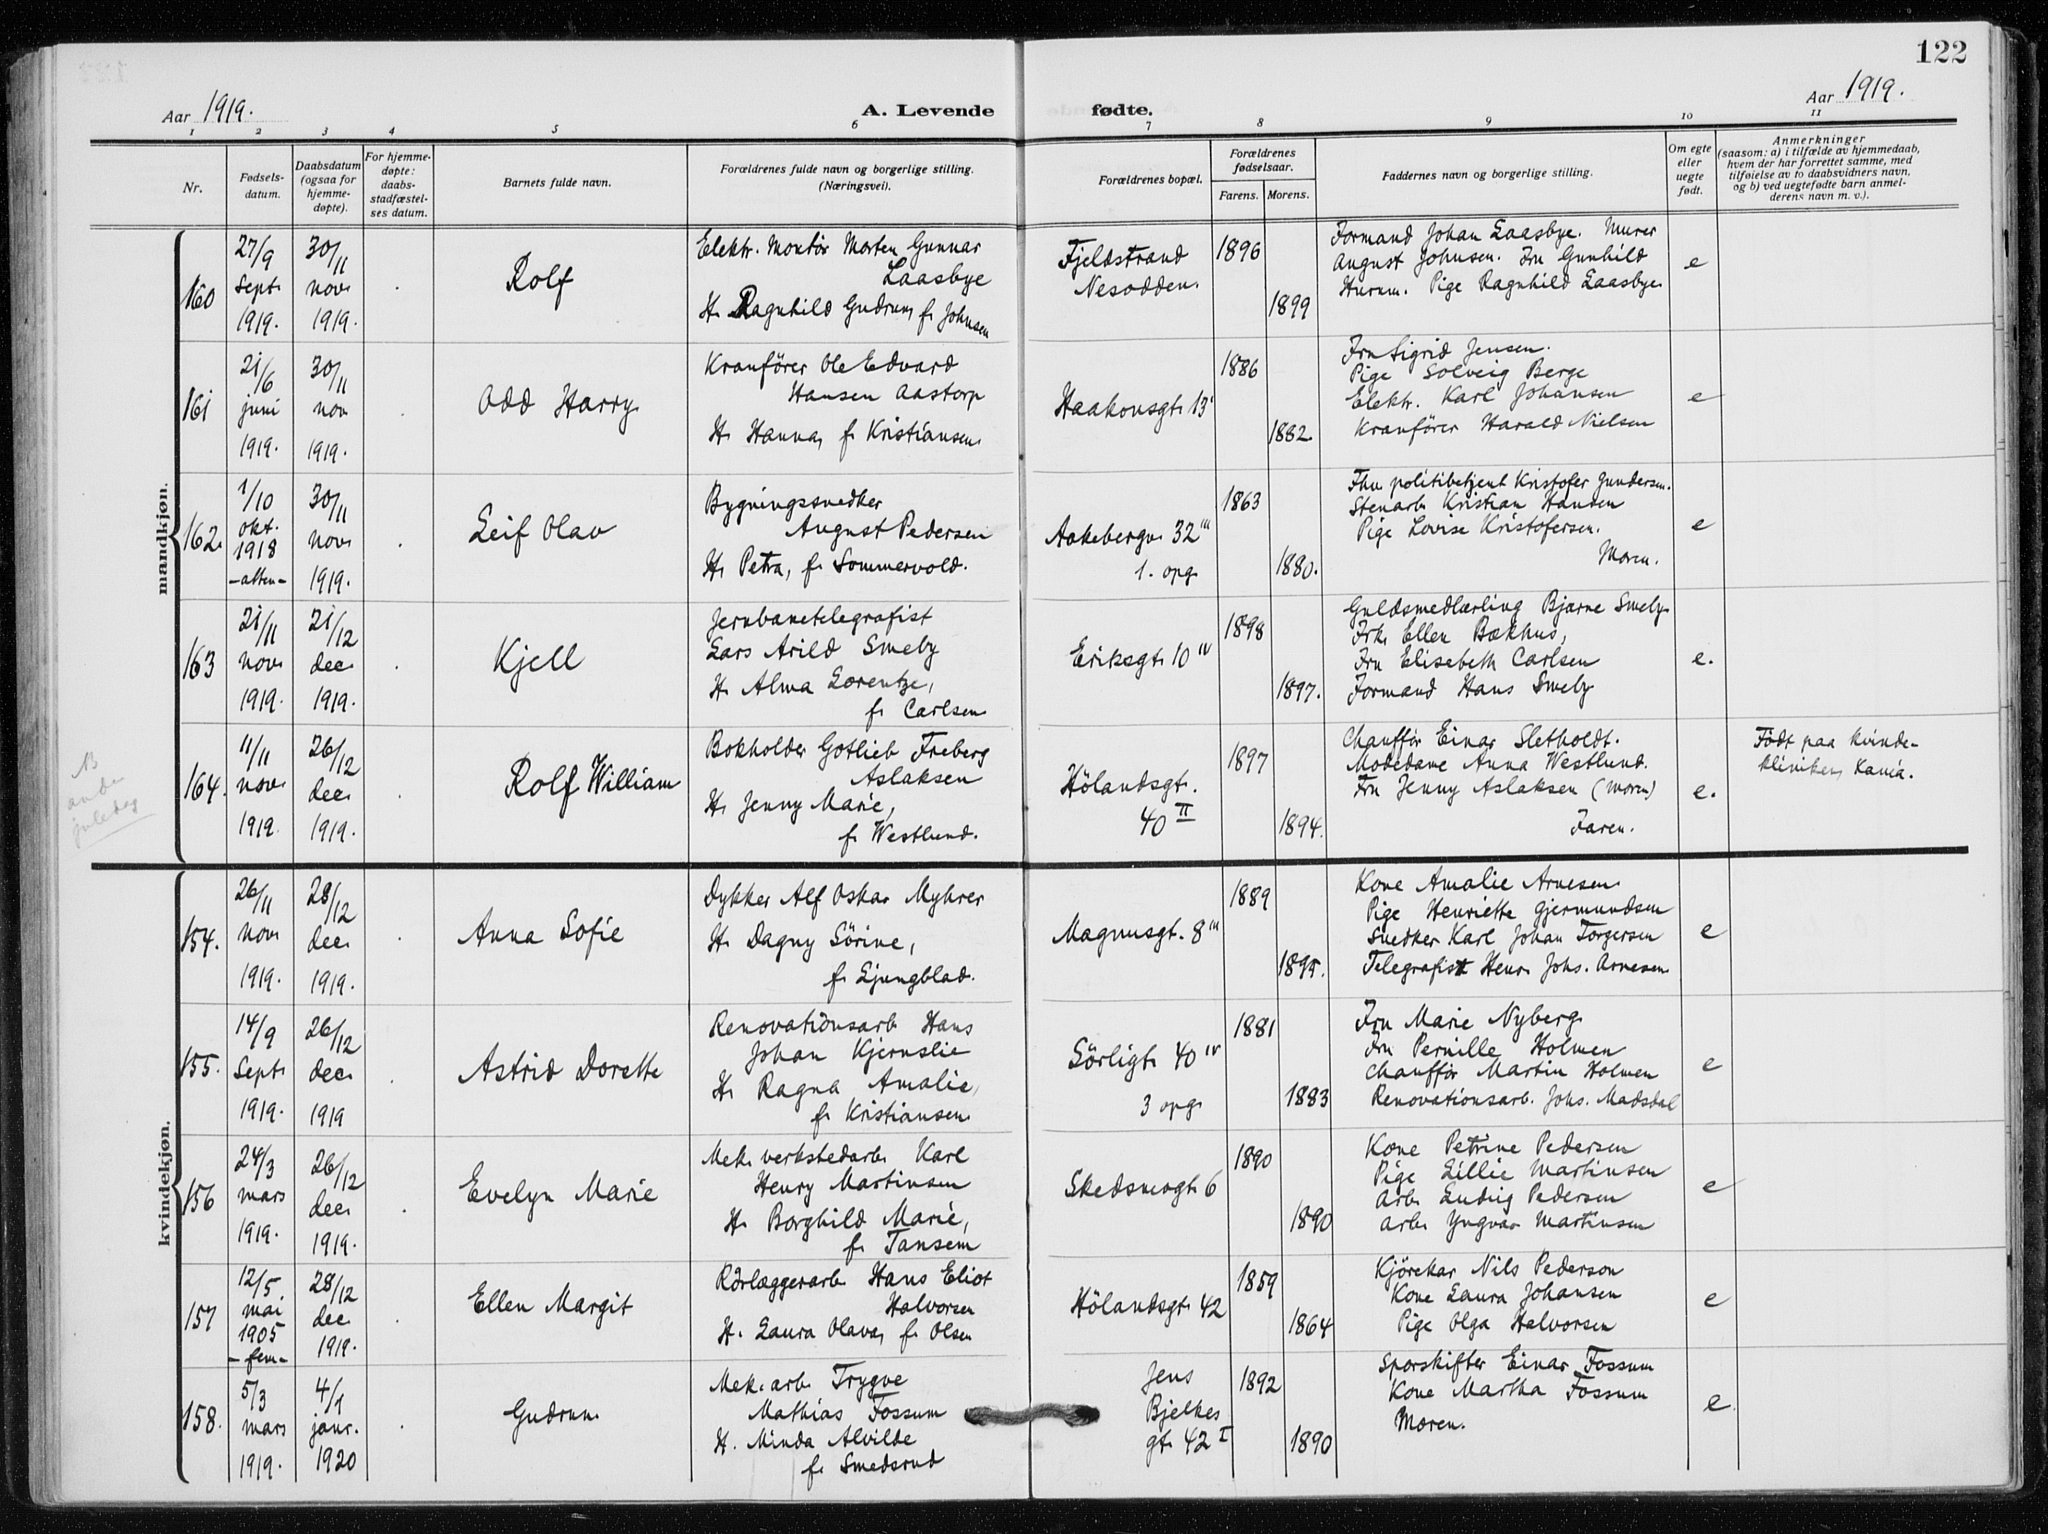 122
Aar 1919.
A. Levende fødte.
Aar 1919.
1 2 3 4 5 6 7 8 9 10 11
Nr.
Fødsels-
datum.
Daabsdatum
(ogsaa for
hjemme-
døpte).
For hjemme-
døpte:
daabs-
stadfæstel-
ses datum.
Barnets fulde navn.
Forældrenes fulde navn og borgerlige stilling.
(Næringsvei).
Forældrenes bopæl.
Forældrenes
fødselsaar.
Farens. Morens.
Faddernes navn og borgerlige stilling.
Om egte
eller
uegte
født.
Anmerkninger
(saasom: a) i tilfælde av hjemmedaab,
hvem der har forrettet samme, med
tilføielse av to daabsvidners navn,
og b) ved uegtefødte barn anmel-
derens navn m. v.).
mandkjøn.
160
27/9
Sept.
1919.
30/11
nov.
1919.
Rolf
Elektr. Montør Morten Gunnar
Laasbye
H. Ragnhild Gudrun, f. Johnsen
Fjeldstrand
Nesodden.
1896
1899
Formand Johan Laasbye. Murer
August Johnsen. Fru Gunhild
Hurum. Pige Ragnhild Laasbye.
e
161
21/6
juni
1919.
30/11
nov
1919.
Odd Harry
Kranfører Ole Edvard
Hansen Aastorp
H. Hanna, f. Kristiansen.
Haakonsgt. 13
1886
1882.
Fru Sigrid Jensen.
Pige Solveig Berge
Elektr. Karl Johansen
Kranfører Harald Nielsen
e
162.
1/10
okt.
1918
-atten-
30/11
nov.
1919.
Leif Olav
Bygningssnedker
August Pedersen
H. Petra, f. Sommervold.
Aakebergv. 32 III
1. opg.
1863
1880.
Fhv politibetjent Kristofer Gundersen.
Stenarb. Kristian Hansen
Pige Lovise Kristofersen.
Moren.
e
163
21/11
nov.
1919.
21/12
dec.
1919.
Kjell
Jernbanetelegrafist
Lars Arild Smeby
H. Alma Lorentze,
f. Carlsen
Eriksgt. 10 IV
1898
1897.
Guldsmedlærling Bjarne Smeby
Frk. Ellen Bækhus,
Fru Elisebeth Carlsen
Formand Hans Smeby
e.
NB
anden
juledag
164.
11/11
nov.
1919.
26/12
dec.
1919.
Rolf William
Bokholder Gotlieb Freberg
Aslaksen
H. Jenny Marie,
f. Westlund.
Hölandsgt.
40 II
1897
1894.
Chauffør Einar Sletholdt.
Modedame Anna Westlund.
Fru Jenny Aslaksen (moren)
Faren.
e.
Född paa kvinde-
kliniken, Kania.
kvindekjøn.
154.
26/11
nov.
1919.
28/12
dec.
1919.
Anna Sofie
Dykker Alf Oskar Myhrer
H. Dagny Sörine,
f. Ljungblad.
Magnusgt. 8 III
1889
1895.
Kone Amalie Arnesen
Pige Henriette Gjermundsen
Snedker Karl Johan Torgersen
Telegrafist Henr. Johs. Arnesen
e
155.
14/9
Sept.
1919.
26/12
dec.
1919
Astrid Dorette
Renovationsarb. Hans
Johan Kjernslie
H. Ragna Amalie,
f. Kristiansen.
Sörligt. 40 IV
3 opg.
1881
1883
Fru Marie Nyberg.
Fru Pernille Holmen
Chauffør Martin Holmen
Renovationsarb. Johs. Madsdal
e
156
24/3
mars
1919.
26/12
dec.
1919.
Evelyn Marie
Mek. verkstedarb. Karl
Henry Martinsen
H. Borghild Marie,
f. Tansem
Skedsmogt. 6
1890
1890
Kone Petrine Pedersen
Pige Lillie Martinsen
Arb. Ludvig Pedersen
Arb. Yngvar Martinsen
e
157
12/5.
mai
1905
-fem-
28/12
dec.
1919.
Ellen Margit
Rörlæggerarb. Hans Eliot
Halvorsen
H. Laura Olava, f. Olsen
Hölandsgt. 42
1859
1864
Kjörekar Nils Pederson
Kone Laura Johansen
Pige Olga Halvorsen
e
158.
5/3
mars
1919.
4/1
janr.
1920
Gudrun.
Mek. arb. Trygve
Mathias Fossum
H. Minda Alvilde
f. Smedsrud
Jens
Bjelkes
gt. 42 I
1892
1890
Sporskifter Einar Fossum
Kone Martha Fossum
Moren.
e